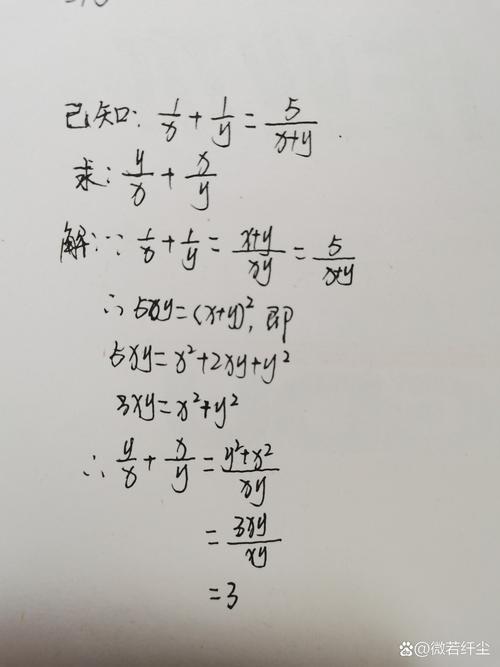 已知: 1/x + 1/y = 5/(x+y).
求: y/x + x/y
解: ∵ 1/x + 1/y = (x+y)/xy = 5/(x+y)
∴ 5xy = (x+y)², 即
5xy = x² + 2xy + y²
3xy = x² + y²
∴ y/x + x/y = (y²+x²)/xy
= 3xy/xy
= 3
@微若纤尘